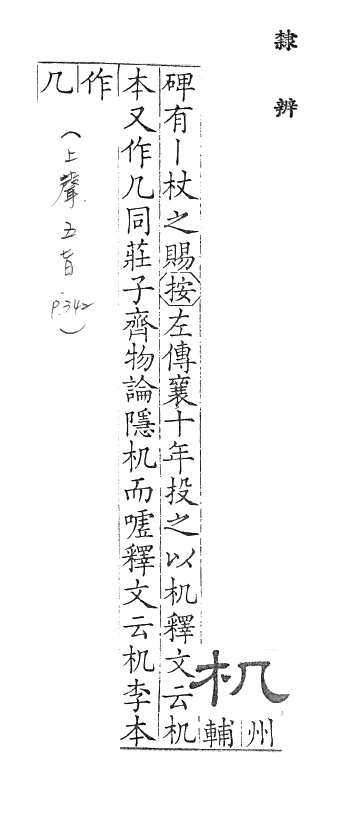 隸辨
机
州輔
碑有丨杖之賜按左傳襄十年投之以机釋文云机
本又作几同莊子齊物論隱机而噓釋文云机李本
作
几
(上聲五旨 p.342)